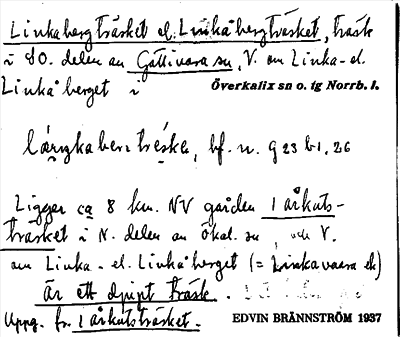 Linkabergträsket el. Linkåbergträsket, träsk
i SO. delen av Gällivare sn, V. om Linka- el.
Linkåberget i Överkalix sn o. tg Norrb. l.
bf. n. G 23 b 1, 26
Ligger ca 8 km. NV gården Jårkuts-
träsket i N. delen av Ökal. sn, och V.
om Linka- el. Linkåberget (= Linkavaara
Är ett djupt träsk.
Uppg. fr. Jårkutsträsket. EDVIN BRÄNNSTRÖM 1937